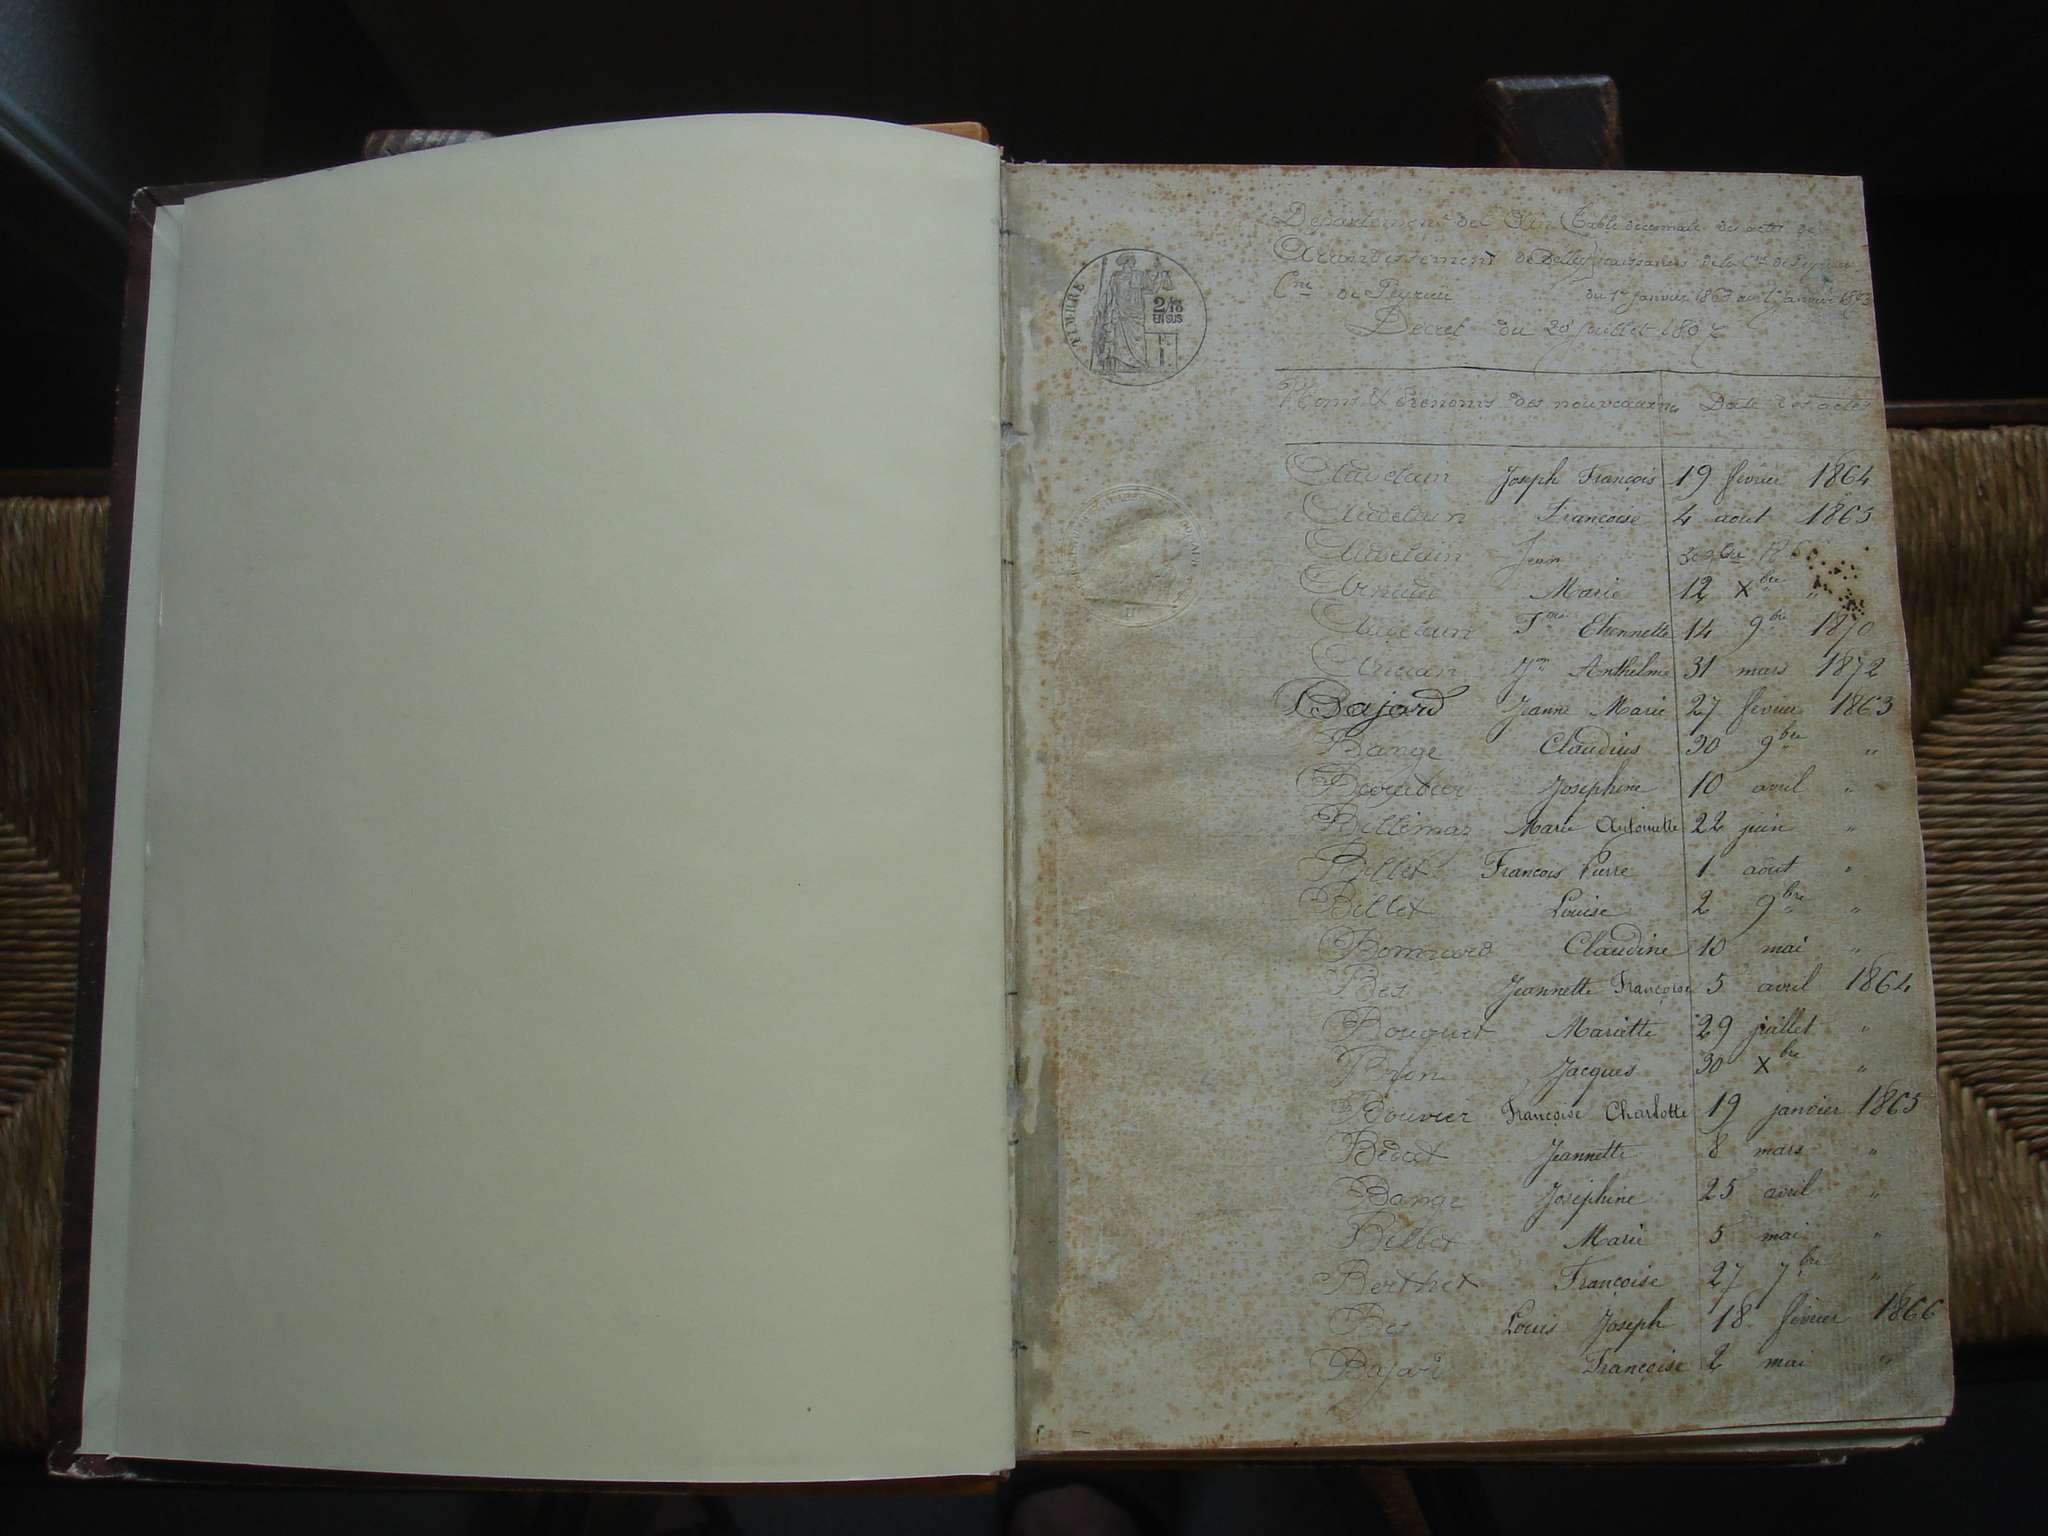 Département de l'Ain Table décennale des actes de
Arrondissement de Belley naissances de la Cne de Peyrieu
Cne de Peyrieu du 1er janvier 1863 au 1er janvier 1873
Décret du 20 juillet 1807
TIMBRE
2/10
EN SUS
Noms & Prénoms des nouveaux nés Date des actes
Auvelain Joseph François 19 février 1864
Auvelain Françoise 4 aout 1865
Auvelain Jean
Marie 12 Xbre "
Auvelain Etiennette 14 9bre 1870
Anthelme 31 mars 1872
Bajard Jeanne Marie 27 février 1863
Bange Claudius 30 9bre "
Joséphine 10 avril "
Billemaz Marie Antoinette 22 juin "
Billet François Pierre 1 août "
Billet Louise 2 9bre "
Bonnard Claudine 10 mai "
Bes Jeannette Françoise 5 avril 1864
Bouquet Mariette 29 juillet "
Bron Jacques 30 Xbre "
Bouvier Françoise Charlotte 19 janvier 1865
Bédat Jeannette 8 mars "
Bange Joséphine 25 avril "
Billet Marie 5 mai "
Berthet Françoise 27 7bre "
Bes Louis Joseph 18 février 1866
Bajard Françoise 2 mai "